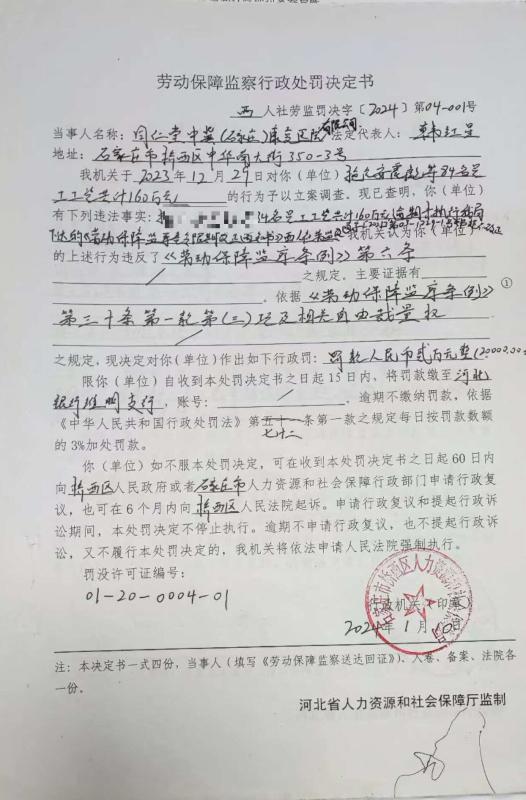 劳动保障监察行政处罚决定书
西 人社劳监罚决字〔2024〕第04-001号
当事人名称：同仁堂中冀(石家庄)康复医院有限公司 法定代表人：韩红星
地址：石家庄市桥西区中华南大街350-3号
我机关于2023年12月27日对你（单位）拖欠 84名员
工工资共计160万元 的行为予以立案调查。现已查明，你（单位）
有下列违法事实： 84名员工工资共计160万元逾期未执行我局
下达的《劳动保障监察 》 我机关认为你（单位）
的上述行为违反了《劳动保障监察条例》第六条
之规定。主要证据有 ①
。依据《劳动保障监察条例》
第三十条第一款第(三)项及相关自由裁量权
之规定，现决定对你（单位）作出如下行政罚：罚款人民币贰万元整(20000.00
限你（单位）自收到本处罚决定书之日起15日内，将罚款缴至河北
银行维明支行，账号： 。逾期不缴纳罚款，依据
《中华人民共和国行政处罚法》第五十一条第一款之规定每日按罚款数额
七十二
的3%加处罚款。
你（单位）如不服本处罚决定，可在收到本处罚决定书之日起60日内
向桥西区人民政府或者石家庄市人力资源和社会保障行政部门申请行政复
议，也可在6个月内向桥西区人民法院起诉。申请行政复议和提起行政诉
讼期间，本处罚决定不停止执行。逾期不申请行政复议，也不提起行政诉
讼，又不履行本处罚决定的，我机关将依法申请人民法院强制执行。
罚没许可证编号：
01-20-0004-01
行政机关（印章）
2024年1月10日
注：本决定书一式四份，当事人（填写《劳动保障监察送达回证》）、入卷、备案、法院各
一份。
河北省人力资源和社会保障厅监制